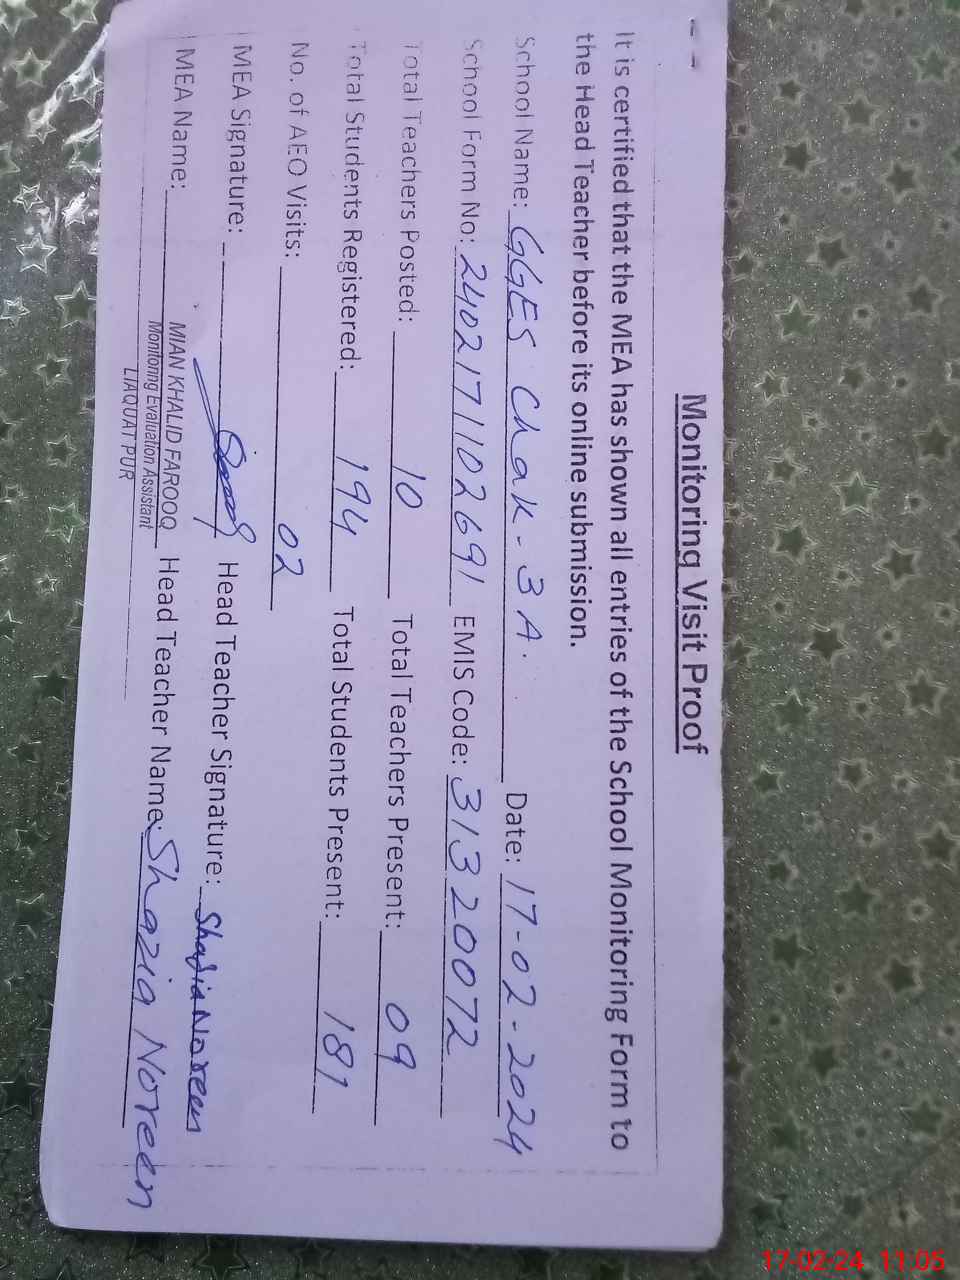 Monitoring Visit Proof
It is certified that the MEA has shown all entries of the School Monitoring Form to
the Head Teacher before its online submission.
School Name: GGES Chak-3A. Date: 17-02-2024
School Form No: 24021711102691 EMIS Code: 31320072
Total Teachers Posted: 10 Total Teachers Present: 09
Total Students Registered: 194 Total Students Present: 181
No. of AEO Visits: 02
MEA Signature: Head Teacher Signature: Shazia Noreen
MEA Name: MIAN KHALID FAROOQ Head Teacher Name: Shazia Noreen
Monitoring Evaluation Assistant
LIAQUAT PUR
17-02-24 11:05